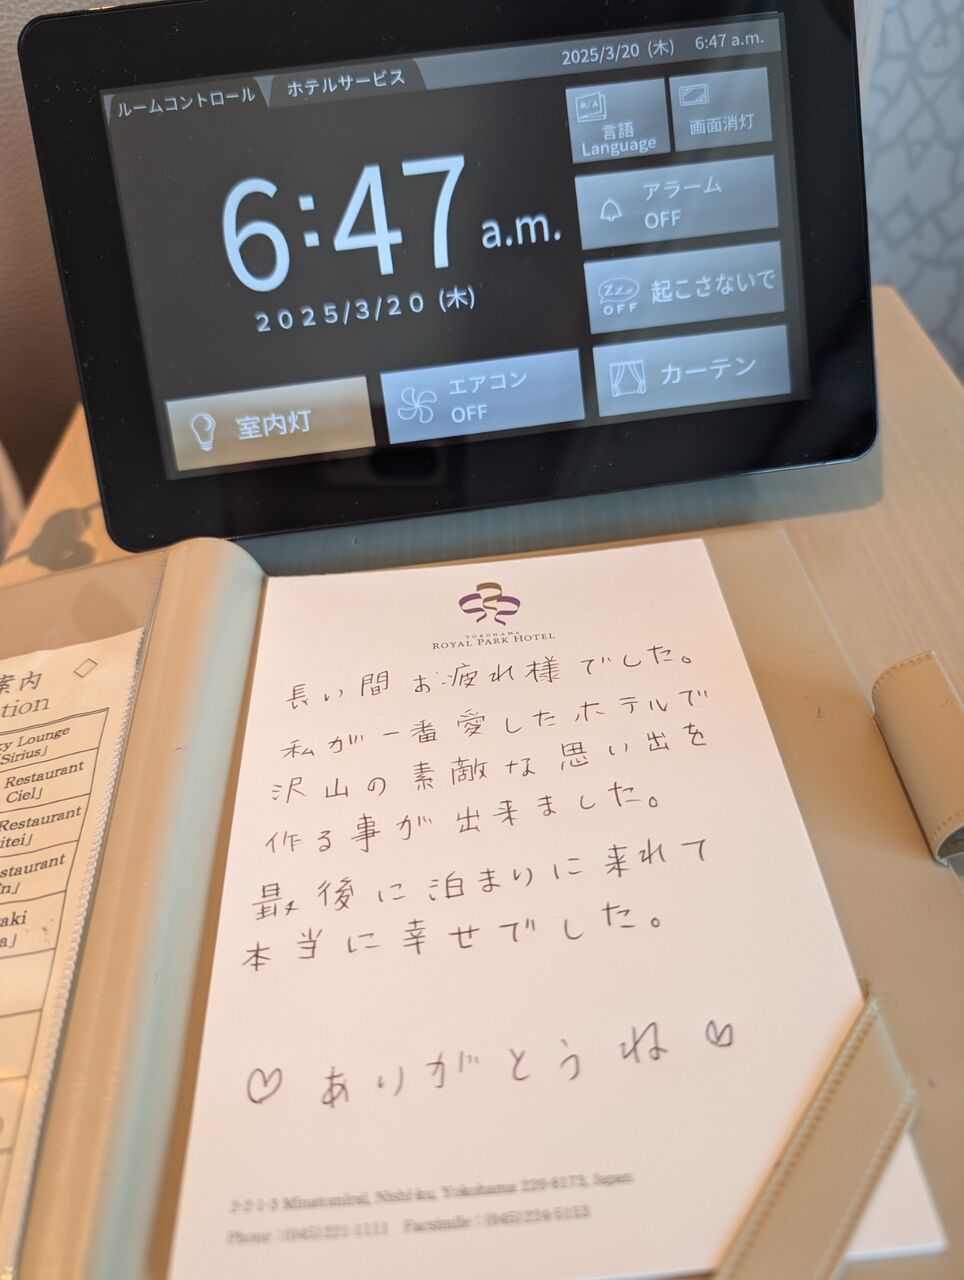 ルームコントロール
ホテルサービス
2025/3/20 (木) 6:47 a.m.
言語
Language
画面消灯
6:47 a.m.
2025/3/20 (木)
アラーム
OFF
ZZz
OFF
起こさないで
室内灯
エアコン
OFF
カーテン
案内
Lounge
Sirius」
Restaurant
Ciel」
Restaurant
YOKOHAMA
ROYAL PARK HOTEL
長い間お疲れ様でした。
私が一番愛したホテルで
沢山の素敵な思い出を
作る事が出来ました。
最後に泊まりに来れて
本当に幸せでした。
♡ ありがとうね ♡
2-2-1-3 Minatomirai, Nishi-ku, Yokohama 220-8173, Japan
Phone : (045) 221-1111 Facsimile : (045) 224-5153